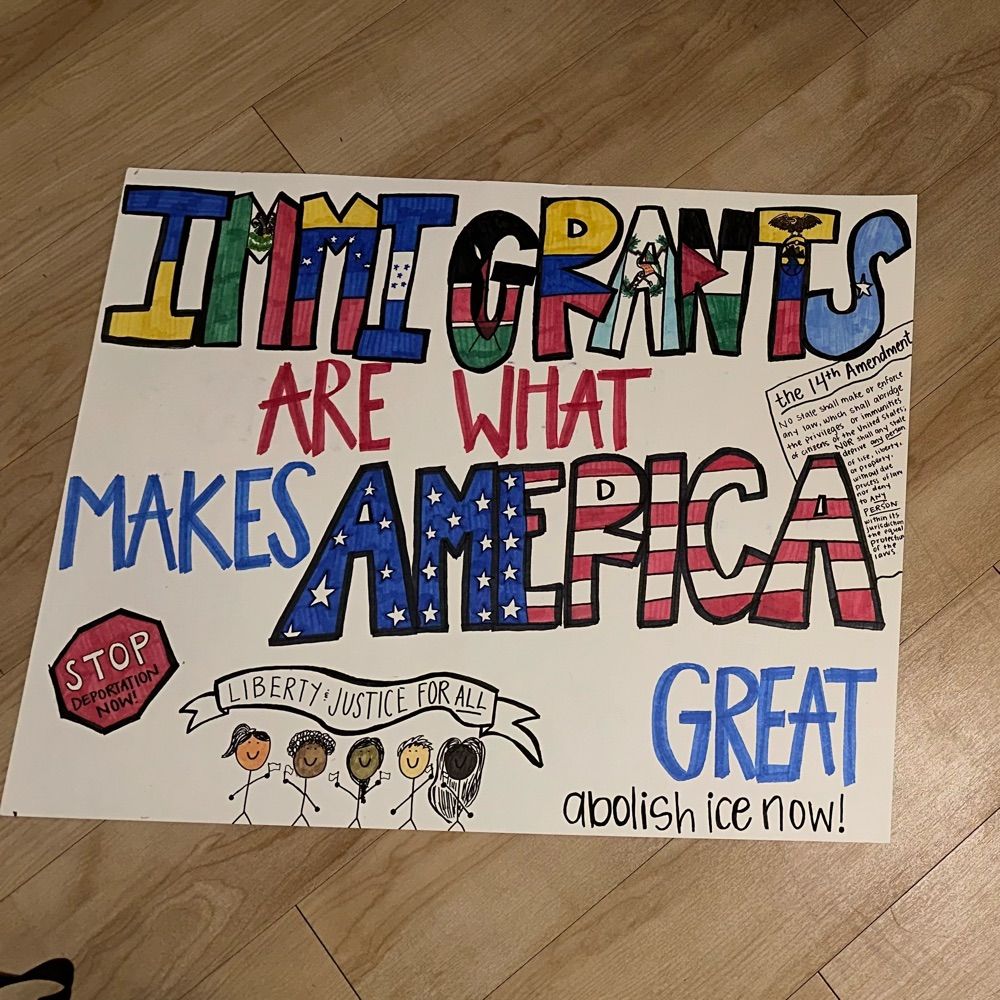 IMMIGRANTS
ARE WHAT
MAKES AMERICA
GREAT
abolish ice now!
the 14th Amendment
No State shall make or enforce
any law, which shall abridge
the privileges or immunities
of citizens of the United States;
NOR shall any State
deprive any person
of life, liberty,
or property,
without due
process of law
nor deny
to ANY
PERSON
within its
jurisdiction
the equal
protection
of the
laws
STOP
DEPORTATION
NOW!
LIBERTY & JUSTICE FOR ALL